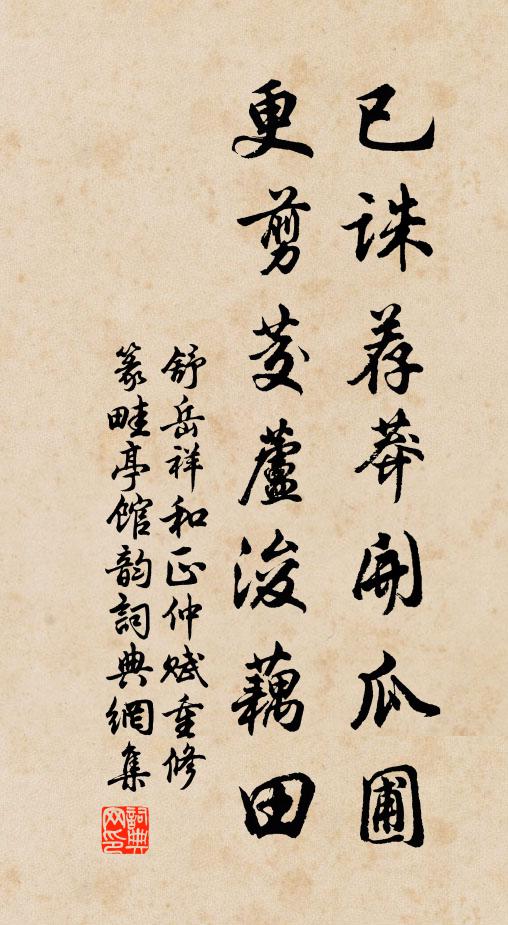 已诛荐莽開瓜圃
更剪芰蘆浚藕田
舒岳祥和正仲赋重修
篆畦亭馆韵詞典網集
詞典网印